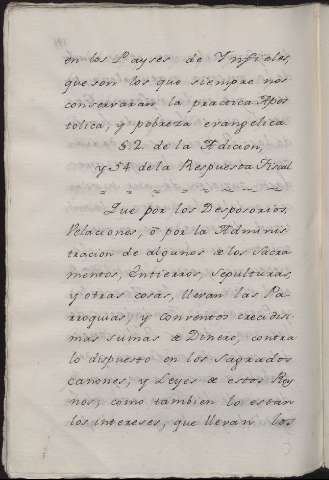 en los Payses de Ynfieles,
que son los que siempre nos
conservaran la practica Apos
tolica, y pobreza evangelica.
§. 2. de la Adicion,
y 54 de la Respuesta Fiscal
Que por los Desposorios,
Velaciones, ô por la Adminis
tracion de algunos de los Sacra
mentos, Entierros, Sepulturas,
y otras cosas, llevan las Pa-
rroquias, y Conventos crecidis-
mas sumas de Dinero, contra
lo dispuesto en los Sagrados
Canones, y Leyes de estos Rey
nos, como tambien lo estan
los intereses, que llevan los